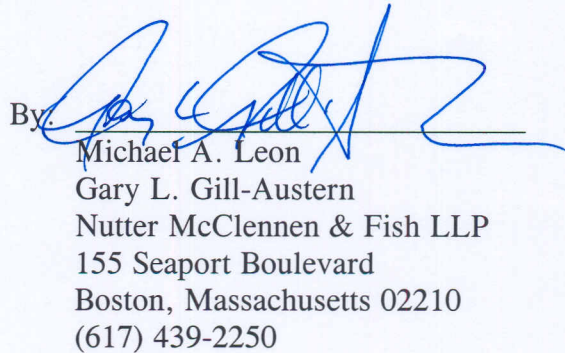 By:
Michael A. Leon
Gary L. Gill-Austern
Nutter McClennen & Fish LLP
155 Seaport Boulevard
Boston, Massachusetts 02210
(617) 439-2250